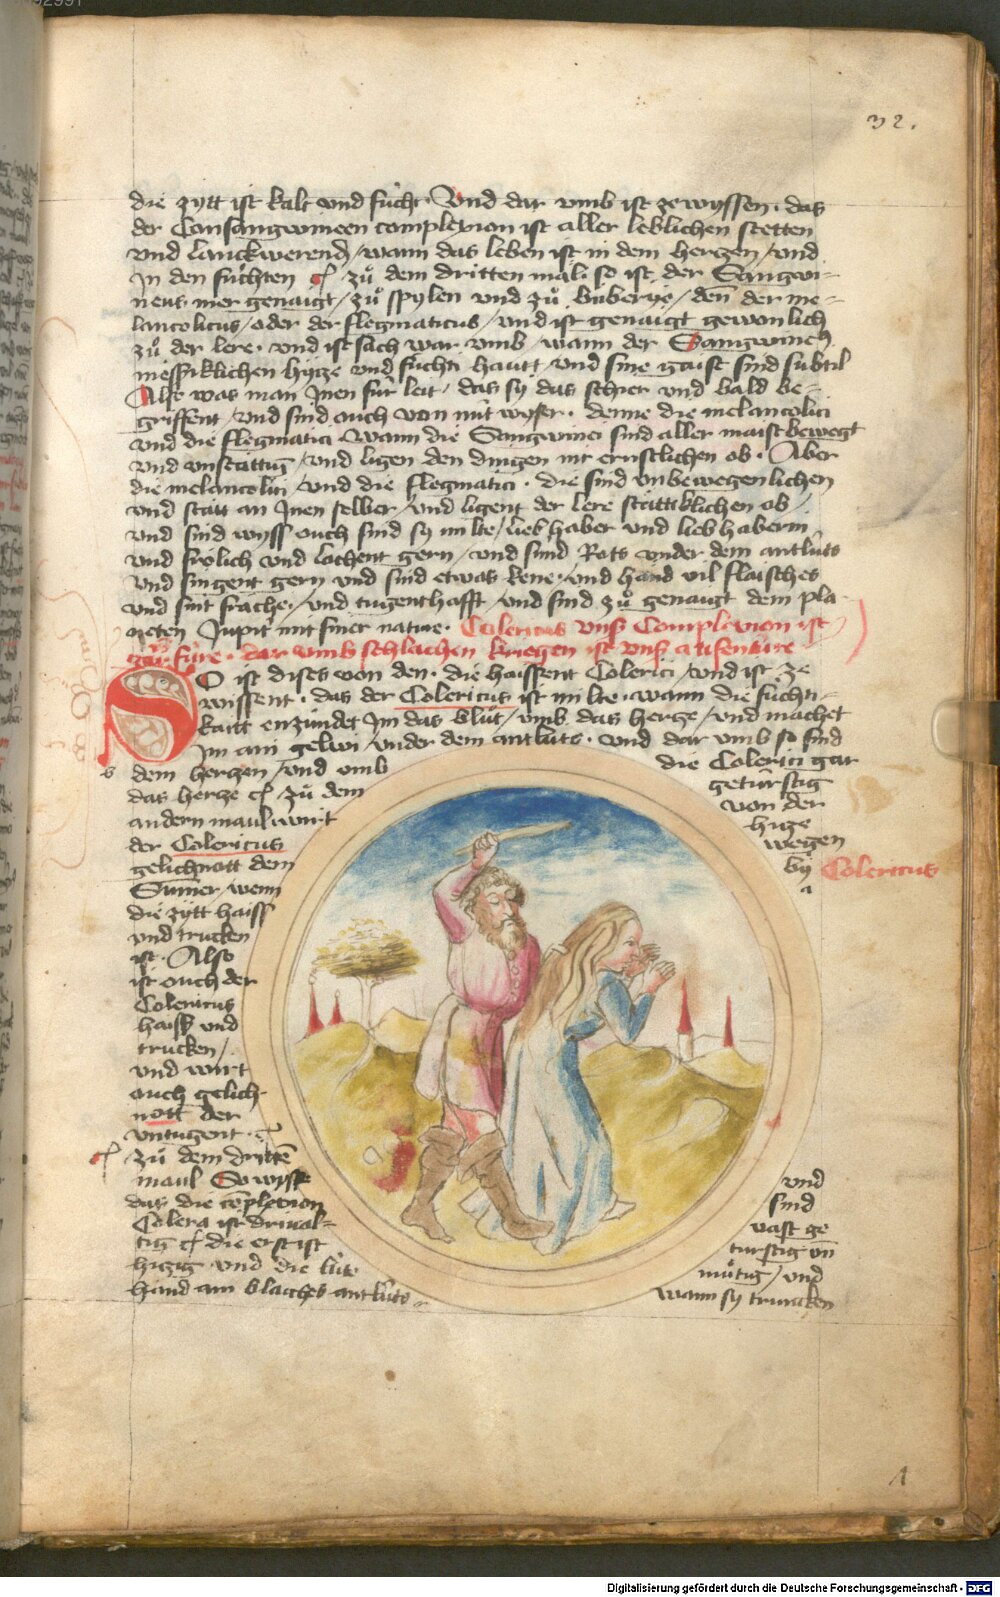 32.
die zytt ist kalt vnd fücht. Vnd dar vmb ist ze wyssen. das
der Consangwineen complexion ist aller leblichen stetten
vnd lanckwerend / wann das leben ist in dem hertzen / vnd
In den füchten zů dem dritten mäl so ist der Sangwi-
neus mer genaigt / zů spylen vnd zů buberye / den̄ der me-
lancolicus / oder der flegmaticus / vnd ist genaigt gewonlich
zů der lere. vnd ist sach war vmb / wann der Sangwineus
messiklichen hytze vnd füchti hautt / vnd sine gaist sind subtil
Also was man Inen für leit / das sy das schier vnd bald be-
griffent / vnd sind ouch von nüt wyser. denne die melancolici
vnd die flegmatici. wann die Sangwinei sind aller maist bewegt
vnd vnstättig / vnd ligen den dingen nit ernstlichen ob. Aber
die melancolici / vnd die flegmatici. die sind vnbewegenlichen
vnd statt an Inen selber / vnd ligent der lere stättiklichen ob /
vnd sind wyss ouch sind sy milte / lieb haber vnd lieb haberin
vnd frölich vnd lachent gern / vnd sind Rots vnder dem antlüts
vnd singent gern vnd sind etwas kene / vnd händ vil flaisches
vnd sint fräche / vnd tugenthafft / vnd sind zů genaigt dem pla-
neten Jupit mit siner nature. Colericus vnß Complexion ist
gar füre. dar vmb schlachen kriegen ist vnß afisentüre
SO ist dises von den. die haissent Colerici / vnd ist ze
wissent. das der Colericus ist milte. wann die füchti-
kaitt enzündet Im das blůt / vmb das hertze / vnd machet
Im ain gelwi / vnder dem antlüts. vnd dar vmb so sind
dem hertzen / vnd vmb
das hertze zů dem
andern maul wirt
der Colericus
gelichnott dem
Summer wenn
die zytt haiss
vnd trucken
ist. Also
ist ouch der
Colericus
haiss vnd
trucken /
vnd wirt
ouch gelich-
nott der
vntugent.
zů dem dritten
maul So wyss
das die cōplexion
Colera ist drival-
tig die erst ist
hitzig vnd die lüte
händ am blaiches antlüts
die Colerici gar
getürstig
von der
hitze
wegen
by
Colericus
a
b
vnd
sind
vast ge
türstig vn̄
můtig / vnd
wann sy truncken
1
Digitalisierung gefördert durch die Deutsche Forschungsgemeinschaft - DFG